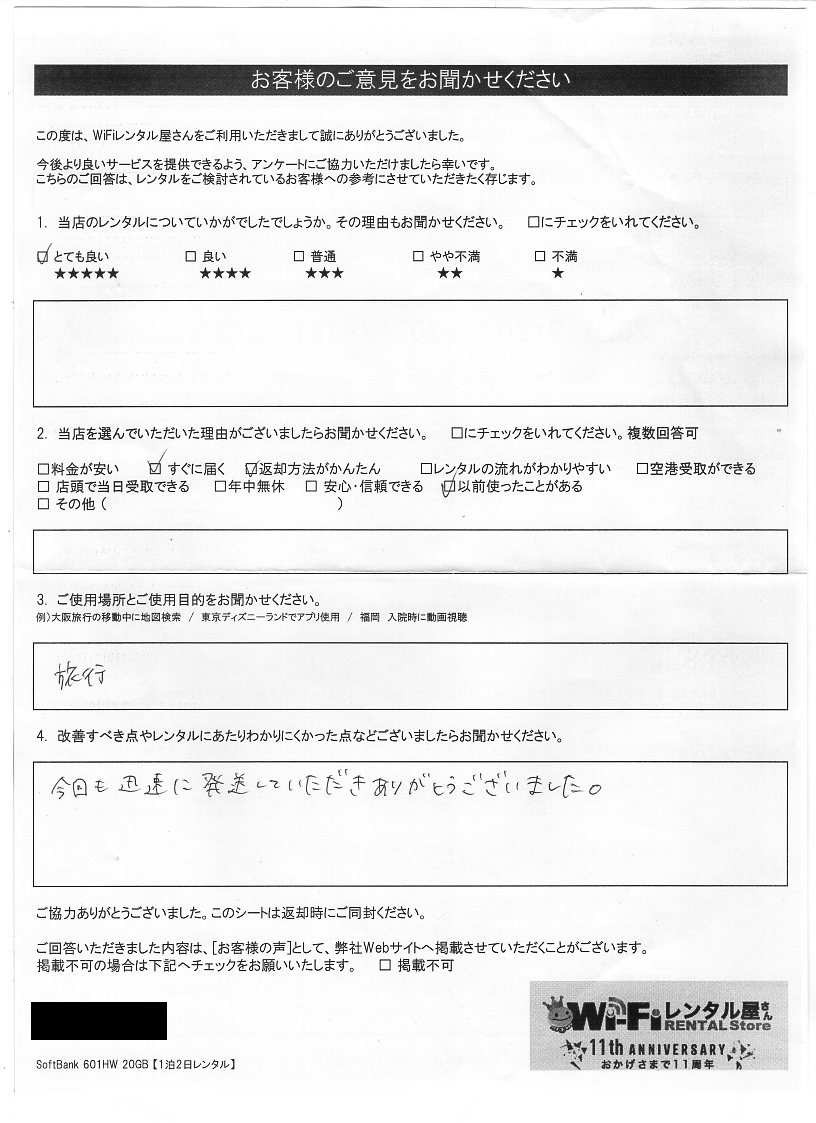 お客様のご意見をお聞かせください
この度は、WiFiレンタル屋さんをご利用いただきまして誠にありがとうございました。
今後より良いサービスを提供できるよう、アンケートにご協力いただけましたら幸いです。
こちらのご回答は、レンタルをご検討されているお客様への参考にさせていただきたく存じます。
1. 当店のレンタルについていかがでしたでしょうか。その理由もお聞かせください。 □にチェックをいれてください。
☑ とても良い □ 良い □ 普通 □ やや不満 □ 不満
★★★★★ ★★★★ ★★★ ★★ ★
2. 当店を選んでいただいた理由がございましたらお聞かせください。 □にチェックをいれてください。複数回答可
□料金が安い ☑ すぐに届く ☑返却方法がかんたん □レンタルの流れがわかりやすい □空港受取ができる
□ 店頭で当日受取できる □年中無休 □ 安心・信頼できる ☑以前使ったことがある
□ その他 ( )
3. ご使用場所とご使用目的をお聞かせください。
例)大阪旅行の移動中に地図検索 / 東京ディズニーランドでアプリ使用 / 福岡 入院時に動画視聴
旅行
4. 改善すべき点やレンタルにあたりわかりにくかった点などございましたらお聞かせください。
今回も迅速に発送していただきありがとうございました。
ご協力ありがとうございました。このシートは返却時にご同封ください。
ご回答いただきました内容は、[お客様の声]として、弊社Webサイトへ掲載させていただくことがございます。
掲載不可の場合は下記へチェックをお願いいたします。 □ 掲載不可
Wi-Fiレンタル屋さん
RENTAL Store
11th ANNIVERSARY
おかげさまで11周年
SoftBank 601HW 20GB【1泊2日レンタル】